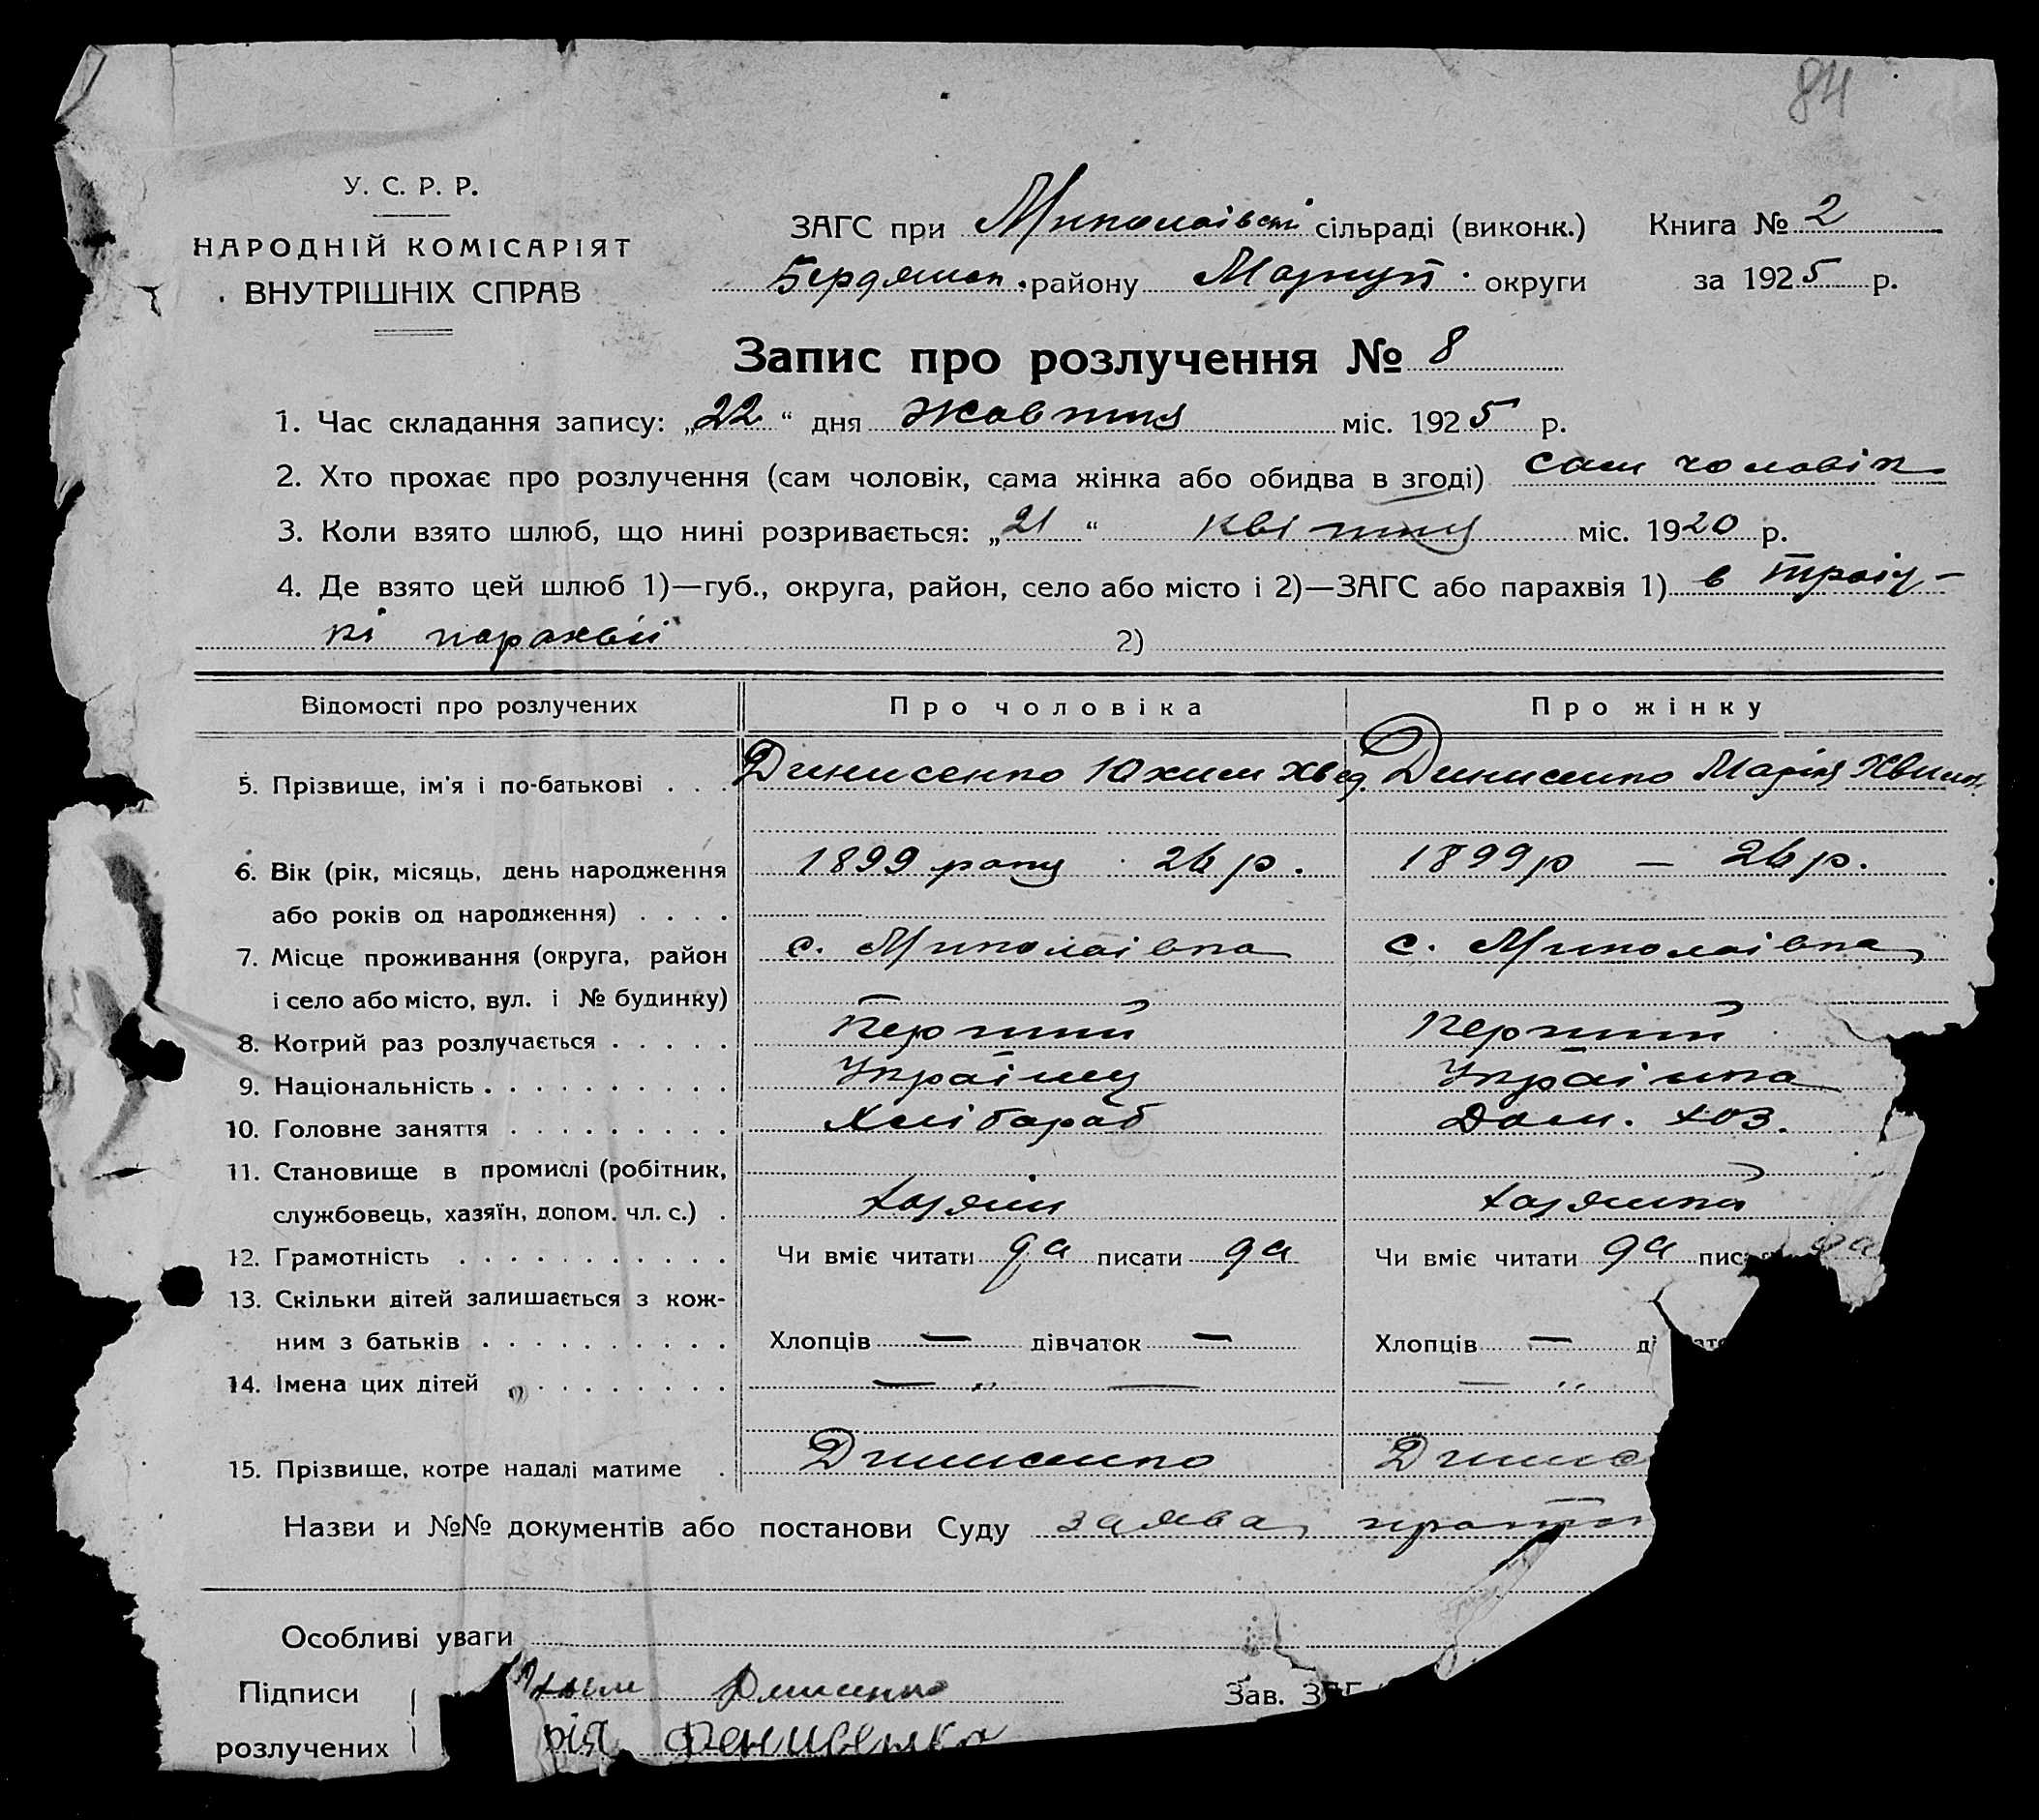 84
У. С. Р. Р.
НАРОДНІЙ КОМІСАРІЯТ
ВНУТРІШНІХ СПРАВ
ЗАГС при Миколаівскі сільраді (виконк.) Книга № 2
Бердянск. району Маріуп. округи за 1925 р.
Запис про розлучення № 8
1. Час складання запису: „22“ дня Жовтня міс. 1925 р.
2. Хто прохає про розлучення (сам чоловік, сама жінка або обидва в згоді) сам чоловік
3. Коли взято шлюб, що нині розривається: „21“ квітня міс. 1920 р.
4. Де взято цей шлюб 1)—губ., округа, район, село або місто і 2)—ЗАГС або парахвія 1) в троіц-
кі парахвіі 2)
Відомості про розлучених Про чоловіка Про жінку
5. Прізвище, ім'я і по-батькові . . . Динисенко Юхим Хвед. Динисенко Марія
6. Вік (рік, місяць, день народження 1899 року 26 р. 1899 р — 26 р.
або років од народження) . . . .
7. Місце проживання (округа, район с. Миколаівка с. Миколаівка
і село або місто, вул. і № будинку)
8. Котрий раз розлучається . . . . . Перший Перший
9. Національність . . . . . . . . . . Украінец Украінка
10. Головне заняття . . . . . . . . . Хлібараб Дом. хоз.
11. Становище в промислі (робітник,
службовець, хазяїн, допом. чл. с.) . Хазяін Хазяйка
12. Грамотність . . . . . . . . . . . Чи вміє читати да писати да Чи вміє читати да пис да
13. Скільки дітей залишається з кож-
ним з батьків . . . . . . . . . . Хлопців — дівчаток — Хлопців — ді
14. Імена цих дітей . . . . . . . . — „ — — „
15. Прізвище, котре надалі матиме . Динисенко Динис
Назви и №№ документів або постанови Суду заява, прот
Особливі уваги
Підписи Денисенко Зав. З
розлучених рія Денисенка